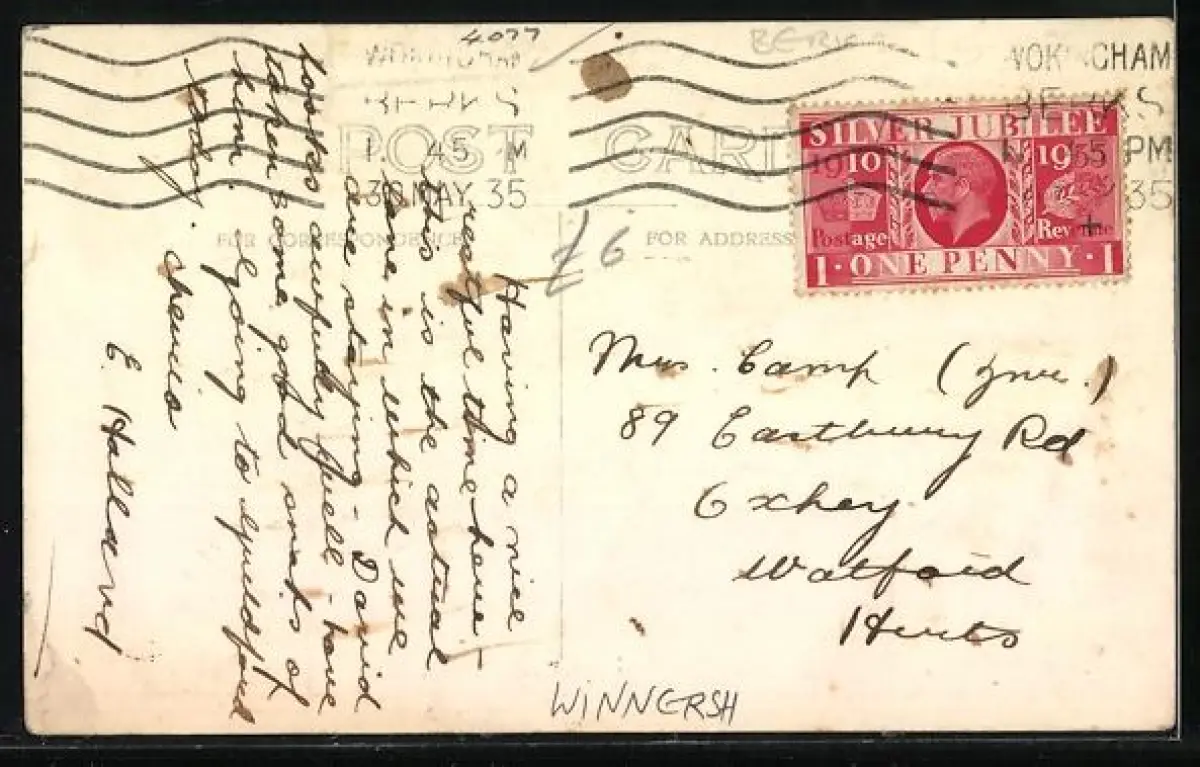 4077
BERKS
WOKINGHAM
BERKS
1. 45 PM
30 MAY 35
WOKINGHAM
BERKS
PM
35
POST CARD
FOR CORRESPONDENCE
FOR ADDRESS
£6
SILVER JUBILEE
1910 1935
Postage Revenue
1 · ONE PENNY · 1
Having a nice
restful time here -
this is the actual
lane in which we
are staying - David
looks awfully well - have
taken some good snaps of
him. Going to Guildford
today. Cheerio
E. Holland
Mrs. Camp (Jnr.)
89 Eastbury Rd
Oxhey
Watford
Herts
WINNERSH